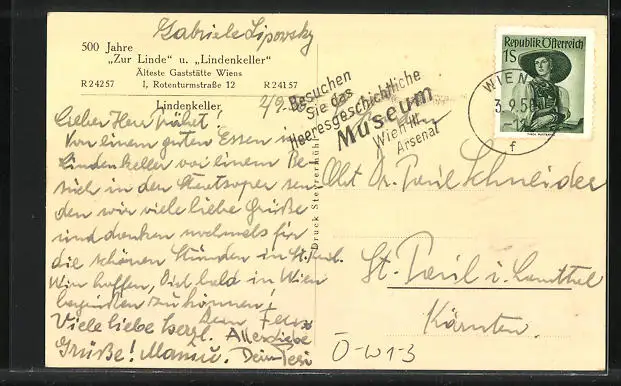 Gabriele Lipovsky
500 Jahre
„Zur Linde" u. „Lindenkeller"
Älteste Gaststätte Wiens
R 24257 I, Rotenturmstraße 12 R 24157
Lindenkeller 2/9.
Lieber Herr
Von einem guten Essen im
Lindenkeller vor einem Be-
such in der Staatsoper sen
den wir viele liebe Grüße
und danken nochmals für
die schönen Stunden in St. Paul.
Wir hoffen, Dich bald in Wien
begrüßen zu können!
Viele liebe herzl. Allerliebe
Grüße! Dein
Druck Steyrermühl
Besuchen
Sie das
Heeresgeschichtliche
Museum
Wien III
Arsenal
WIEN
3.9.56
f
Republik Österreich
1S
Paul Schneider
St. Paul i. Lavanttal
Kärnten.
Ö-W1-3